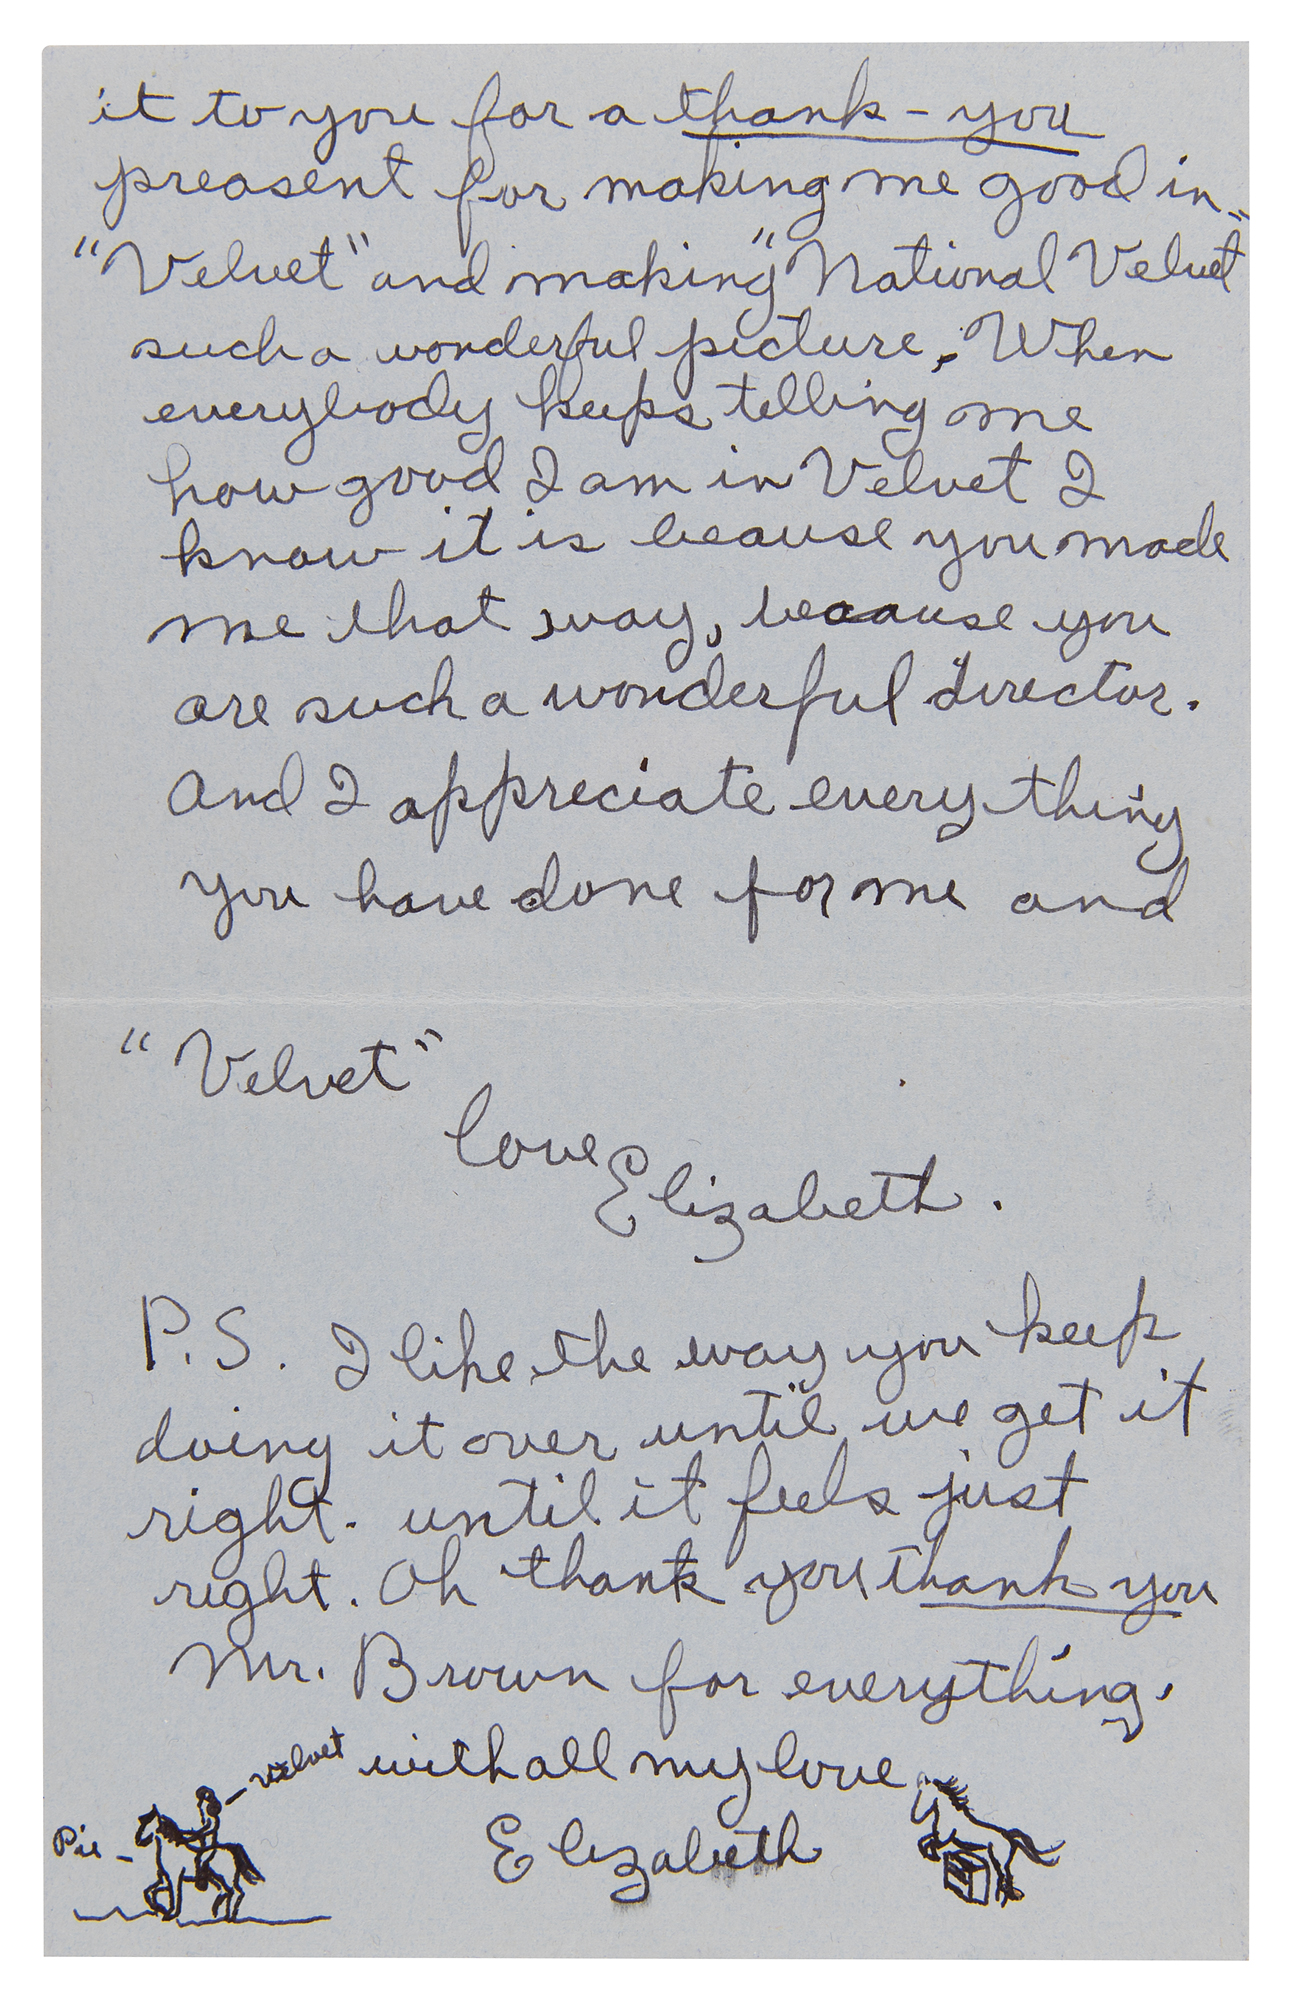 it to you for a thank-you
preasent for making me good in
"Velvet" and making "National Velvet"
such a wonderful picture. When
everybody keeps telling me
how good I am in Velvet I
know it is beause you made
me that way, because you
are such a wonderful director.
And I appreciate everything
you have done for me and
"Velvet"
love
Elizabeth.
P.S. I like the way you keep
doing it over until we get it
right. until it feels just
right. Oh thank you thank you
Mr. Brown for everything.
with all my love
Elizabeth
Velvet
Pie